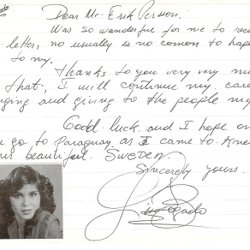 Dear Mr. Erik Persson.
Was so wonderful for me to rece
letter, no usually is no comon to hap
to my.
Thanks to you very very m
that, I will continue my care
nging and giving to the people my
Good luck and I hope on
u go to Paraguay as I came to Ame
beautiful. SWEDEN
Sincerely yours.